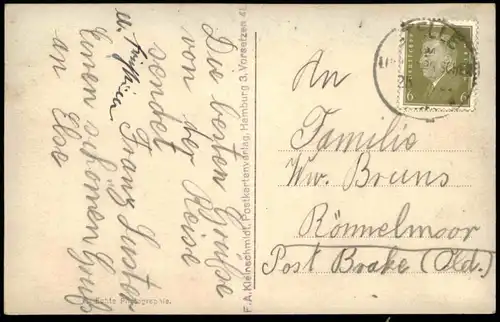 Die besten Grüße
von der Reise
sendet
Franz Luster
u.
Einen schönen Gruß
an Else
F. A. Kleinschmidt, Postkartenverlag, Hamburg 3, Vorsetzen 4
Echte Photographie.
An
Familie
Ww. Bruns
Rönnelmoor
Post Brake (Old.)
6 6